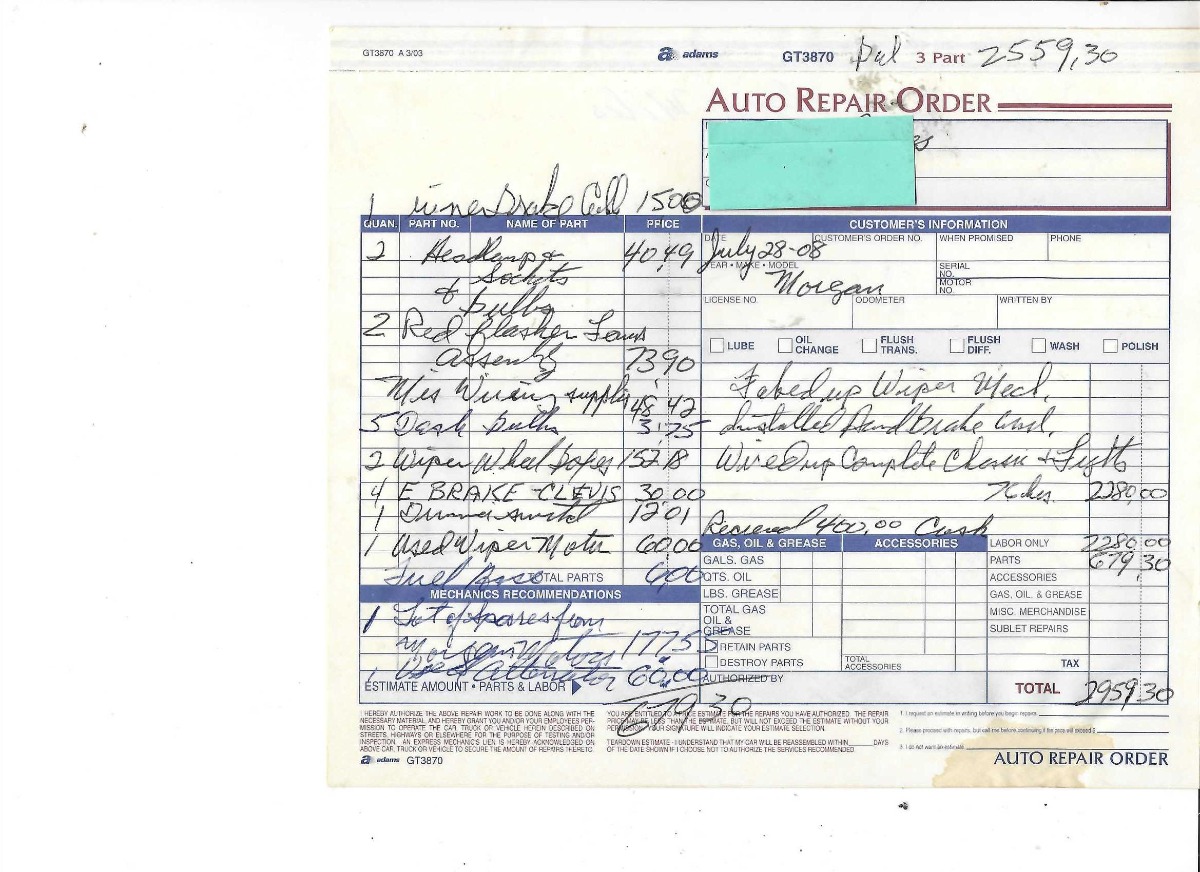 GT3870 A 3/03
adams
GT3870
3 Part
2559,30
AUTO REPAIR ORDER
1 Brake 1500
QUAN. PART NO. NAME OF PART PRICE
2 Headlamp & 40,49
Sockets
& bulbs
2 Red flasher
Assembly 73 90
Mis Wiring supplies 48,42
5 Dash bulbs 3,75
2 Wiper Wheel boxes 152.18
4 E BRAKE CLEVIS 30.00
1 12 01
1 Used Wiper Motor 60.00
TOTAL PARTS 6,00
MECHANICS RECOMMENDATIONS
1 Lot of Spares from
Morgan Motors 177.55
1 Used Alternator 60,00
ESTIMATE AMOUNT • PARTS & LABOR
679.30
CUSTOMER'S INFORMATION
DATE July 28-08
CUSTOMER'S ORDER NO.
WHEN PROMISED
PHONE
YEAR • MAKE • MODEL
Morgan
SERIAL NO.
MOTOR NO.
LICENSE NO.
ODOMETER
WRITTEN BY
LUBE
OIL CHANGE
FLUSH TRANS.
FLUSH DIFF.
WASH
POLISH
up Wiper Mech,
Installed Hand Brake
Wired up Complete & Lights
2280,00
Recieved 400,00 Cash
GAS, OIL & GREASE
ACCESSORIES
LABOR ONLY 2280 00
GALS. GAS
PARTS 679,30
QTS. OIL
ACCESSORIES
LBS. GREASE
GAS, OIL & GREASE
TOTAL GAS OIL & GREASE
MISC. MERCHANDISE
SUBLET REPAIRS
RETAIN PARTS
DESTROY PARTS
TOTAL ACCESSORIES
TAX
AUTHORIZED BY
TOTAL 2959,30
I HEREBY AUTHORIZE THE ABOVE REPAIR WORK TO BE DONE ALONG WITH THE
NECESSARY MATERIAL, AND HEREBY GRANT YOU AND/OR YOUR EMPLOYEES PER-
MISSION TO OPERATE THE CAR TRUCK OR VEHICLE HEREIN DESCRIBED ON
STREETS, HIGHWAYS OR ELSEWHERE FOR THE PURPOSE OF TESTING AND/OR
INSPECTION. AN EXPRESS MECHANIC'S LIEN IS HEREBY ACKNOWLEDGED ON
ABOVE CAR, TRUCK OR VEHICLE TO SECURE THE AMOUNT OF REPAIRS THERETO.
YOU ARE ENTITLED TO A PRICE ESTIMATE FOR THE REPAIRS YOU HAVE AUTHORIZED. THE REPAIR
PRICE MAY BE LESS THAN THE ESTIMATE, BUT WILL NOT EXCEED THE ESTIMATE WITHOUT YOUR
PERMISSION. YOUR SIGNATURE WILL INDICATE YOUR ESTIMATE SELECTION.
TEARDOWN ESTIMATE - I UNDERSTAND THAT MY CAR WILL BE REASSEMBLED WITHIN DAYS
OF THE DATE SHOWN IF I CHOOSE NOT TO AUTHORIZE THE SERVICES RECOMMENDED.
1. I request an estimate in writing before you begin repairs.
2. Please proceed with repairs, but call me before continuing if the price will exceed $
3. I do not want an estimate.
adams GT3870
AUTO REPAIR ORDER